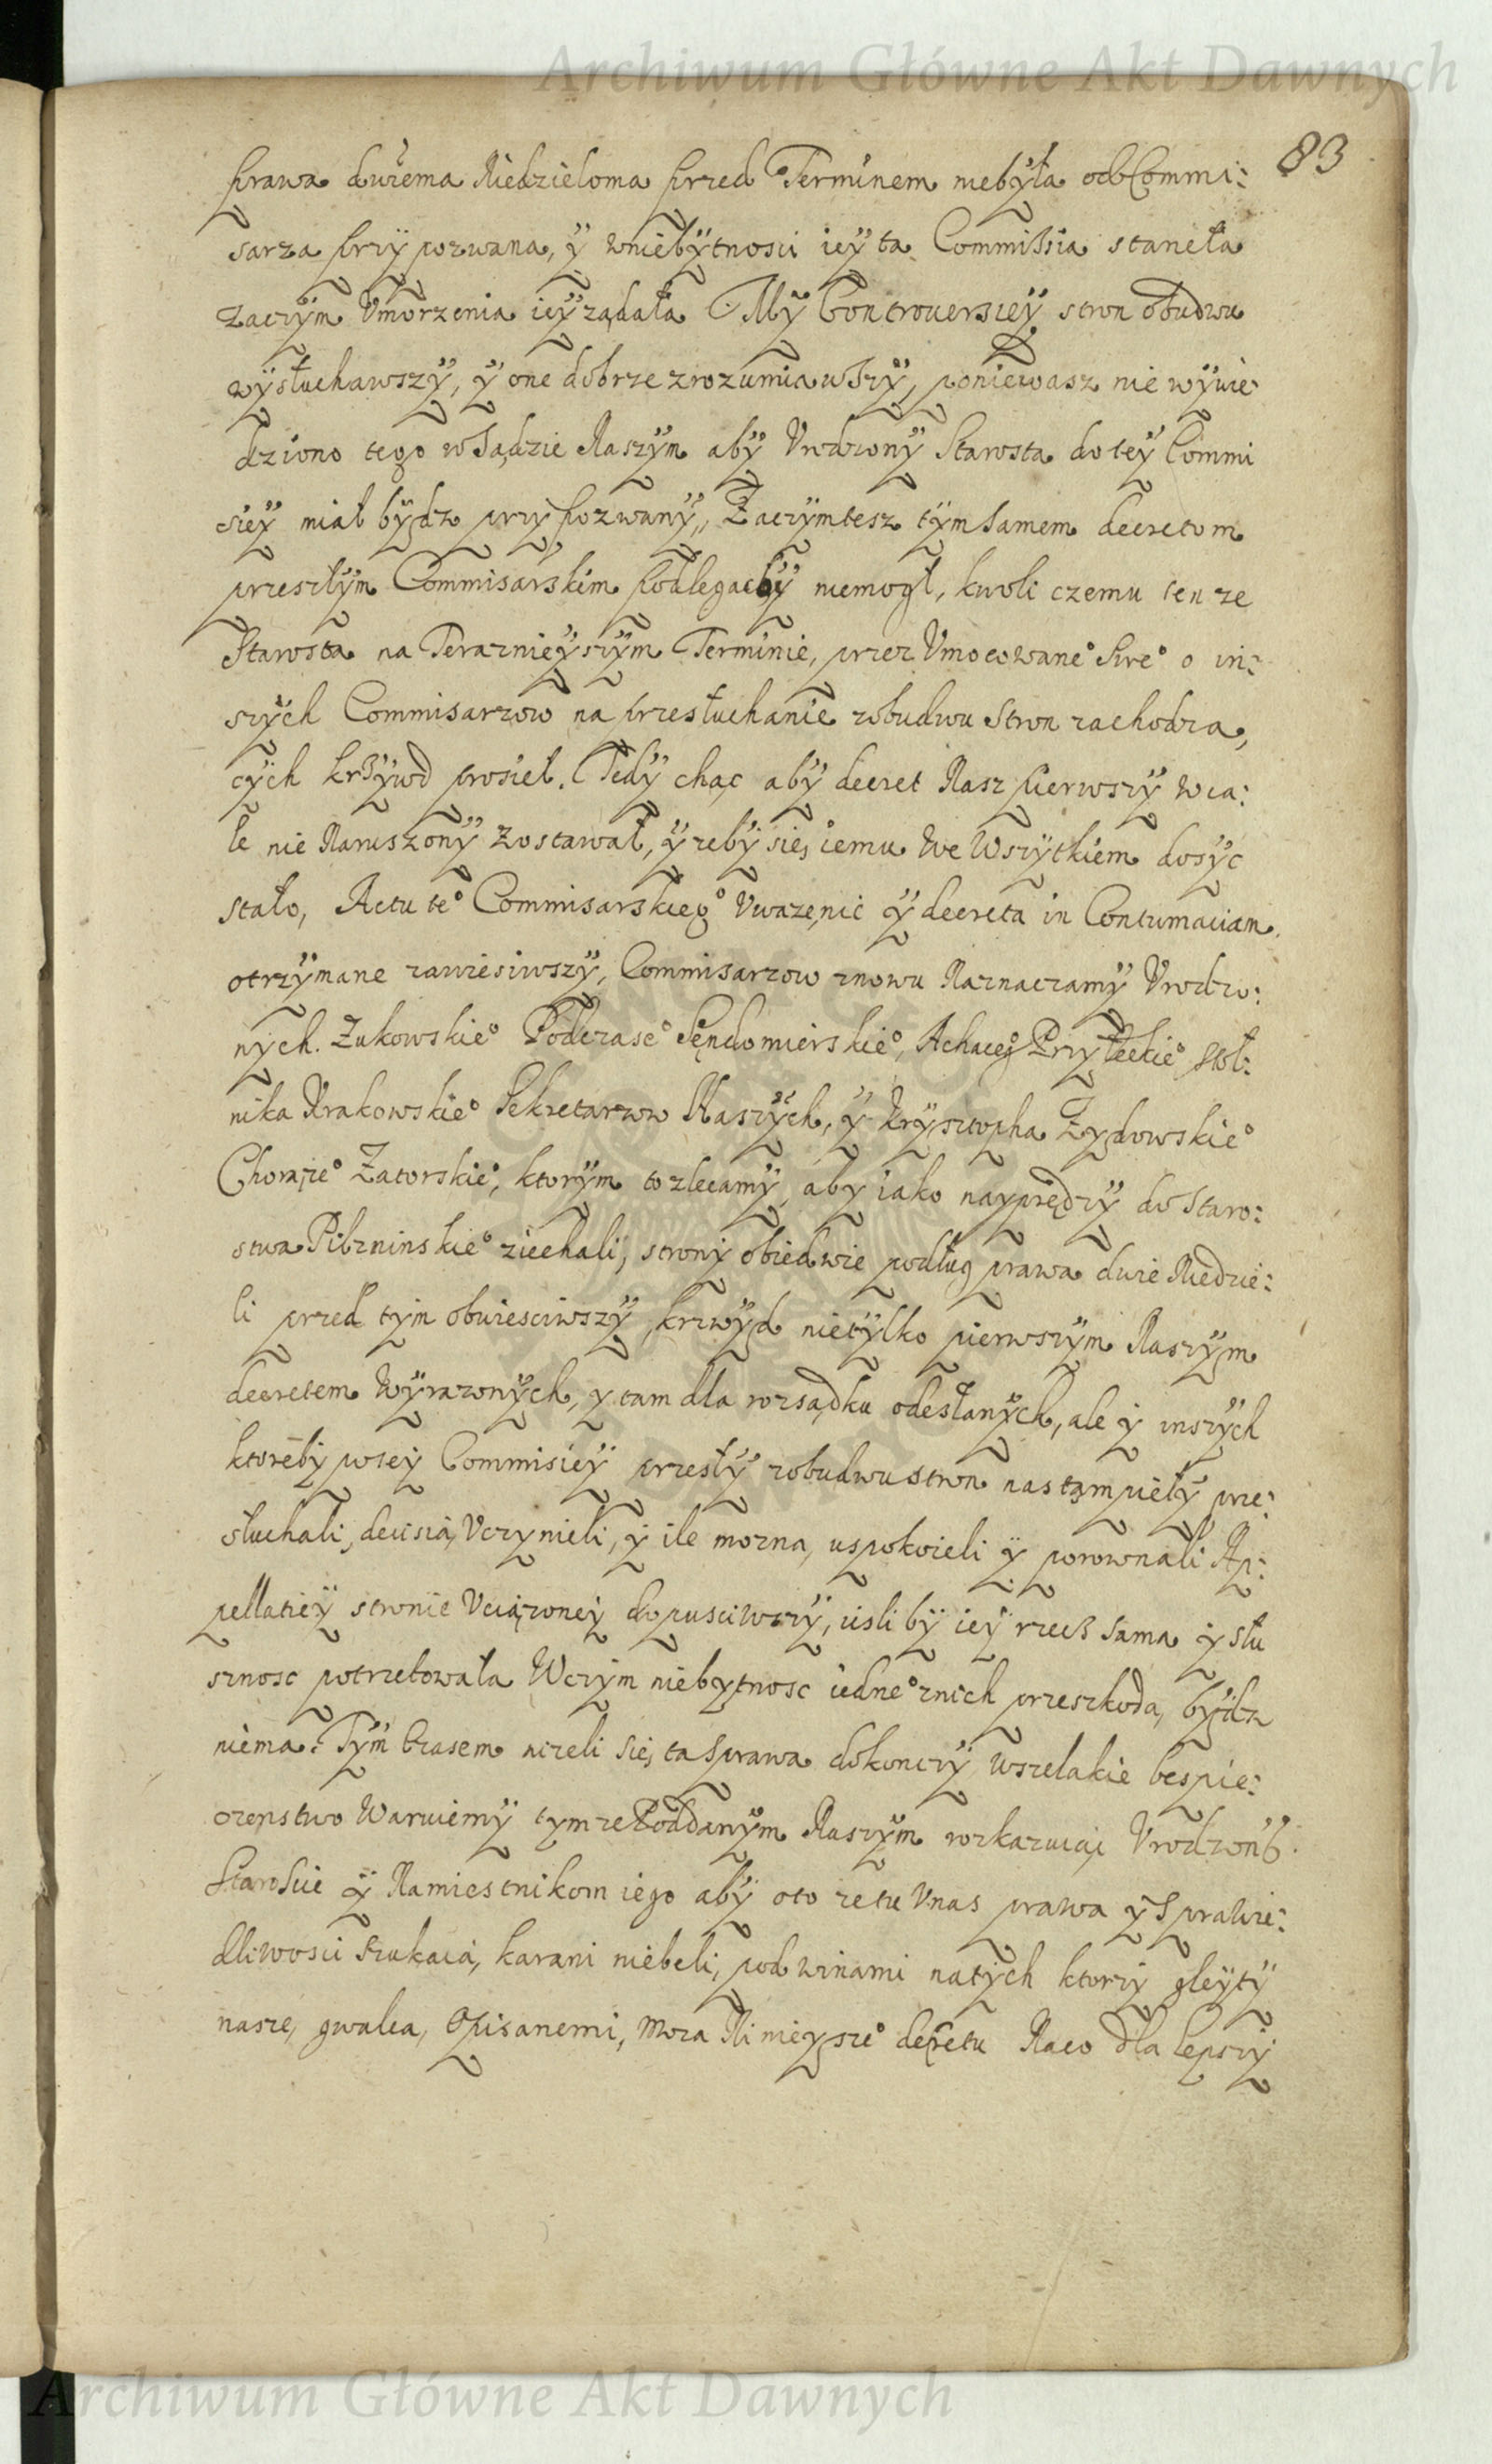 Archiwum Główne Akt Dawnych
83
prawa dwiema Niedzieloma przed Terminem niebÿła od Commi:
sarza prziÿ pozwana, ÿ wniebÿtnosci ieÿ ta Commissia staneła
zaczÿm Vmorzenia ieÿ ządała. Mÿ Controuersieÿ stron obudwu
wÿsłuchawszÿ, ÿ one dobrze zrozumiawszÿ, poniewasz nie wÿwie
dziono tego w Sądzie Naszÿm abÿ Vrodzonÿ Starosta do teÿ Commi
sieÿ miał bÿdz przÿ pozwanÿ, Zaczÿmtesz tÿm samem decretom
przeszłÿm Commisarskim podlegacbÿ niemogł, kwoli czemu ten ze
Starosta na Teraznieÿszÿm Terminie, przez Vmocowane° Swe° o in:
szÿch Commisarzow na przesłuchanie zobudwu stron zachodzą,
cÿch krzÿwd prosieł. Tedÿ chąc abÿ decret Nasz pierwszÿ wca:
le nie Naruszonÿ zostawał, ÿ zebÿ się iemu we wszÿtkiem dosÿc
stało, Actu te° Commisarskieg° Vwazenie ÿ decreta in Contumaciam
otrzÿmane zawiesiwszÿ, Commisarzow znowu Naznaczamÿ Vrodzo:
nÿch. Zukowskie° Podczase° Sendomierskie°, Achaceg° Przÿłeckie° Stol:
nika Krakowskie° Sekretarzow Naszÿch, ÿ Krÿsztopha Zÿdowskie°
Chorąze° Zatorskie°, ktorÿm to zlecamÿ, aby iako nayprędzÿ do Staro:
stwa Pilzninskie° ziechali, stronÿ obiedwie podług prawa dwie Niedzie:
li przed tÿm obwiesciwszÿ, krzwÿd nietÿlko pierwszÿm Naszÿm
decretem wÿrazonÿch, y tam dla rozsądku odesłanÿch, ale ÿ inszÿch
ktorebÿ poteÿ Commisieÿ przesłÿ zobudwu stron nastąmpiełÿ prze:
słuchali, decisią Vczynieli, ÿ ile mozna, uspokoieli ÿ porownali Ap:
pellatieÿ stronie Vciązoneÿ dopusciwszÿ, iisli bÿ ieÿ rzecz sama ÿ słu
sznosc potrzebowała Wczÿm niebÿtnosc iedne° znich przeszkodą bÿdz
niema. Tÿm Czasem nizeli się ta sprawa dokonczÿ wszelakie bespie:
czenstwo Waruiemÿ tymze Poddanÿm Naszÿm rozkazuiąc
Staroscie ÿ Namiestnikom iego abÿ oto ze tu Vnas prawa ÿ Sprawie:
dliwosci szukaią, karani niebeli, pod winami natÿch ktorzÿ gleÿtÿ
nasze gwałcą, Opisanemi, Mocą Ninieÿsze° decretu Naco dla lepszÿ
Archiwum Główne Akt Dawnych